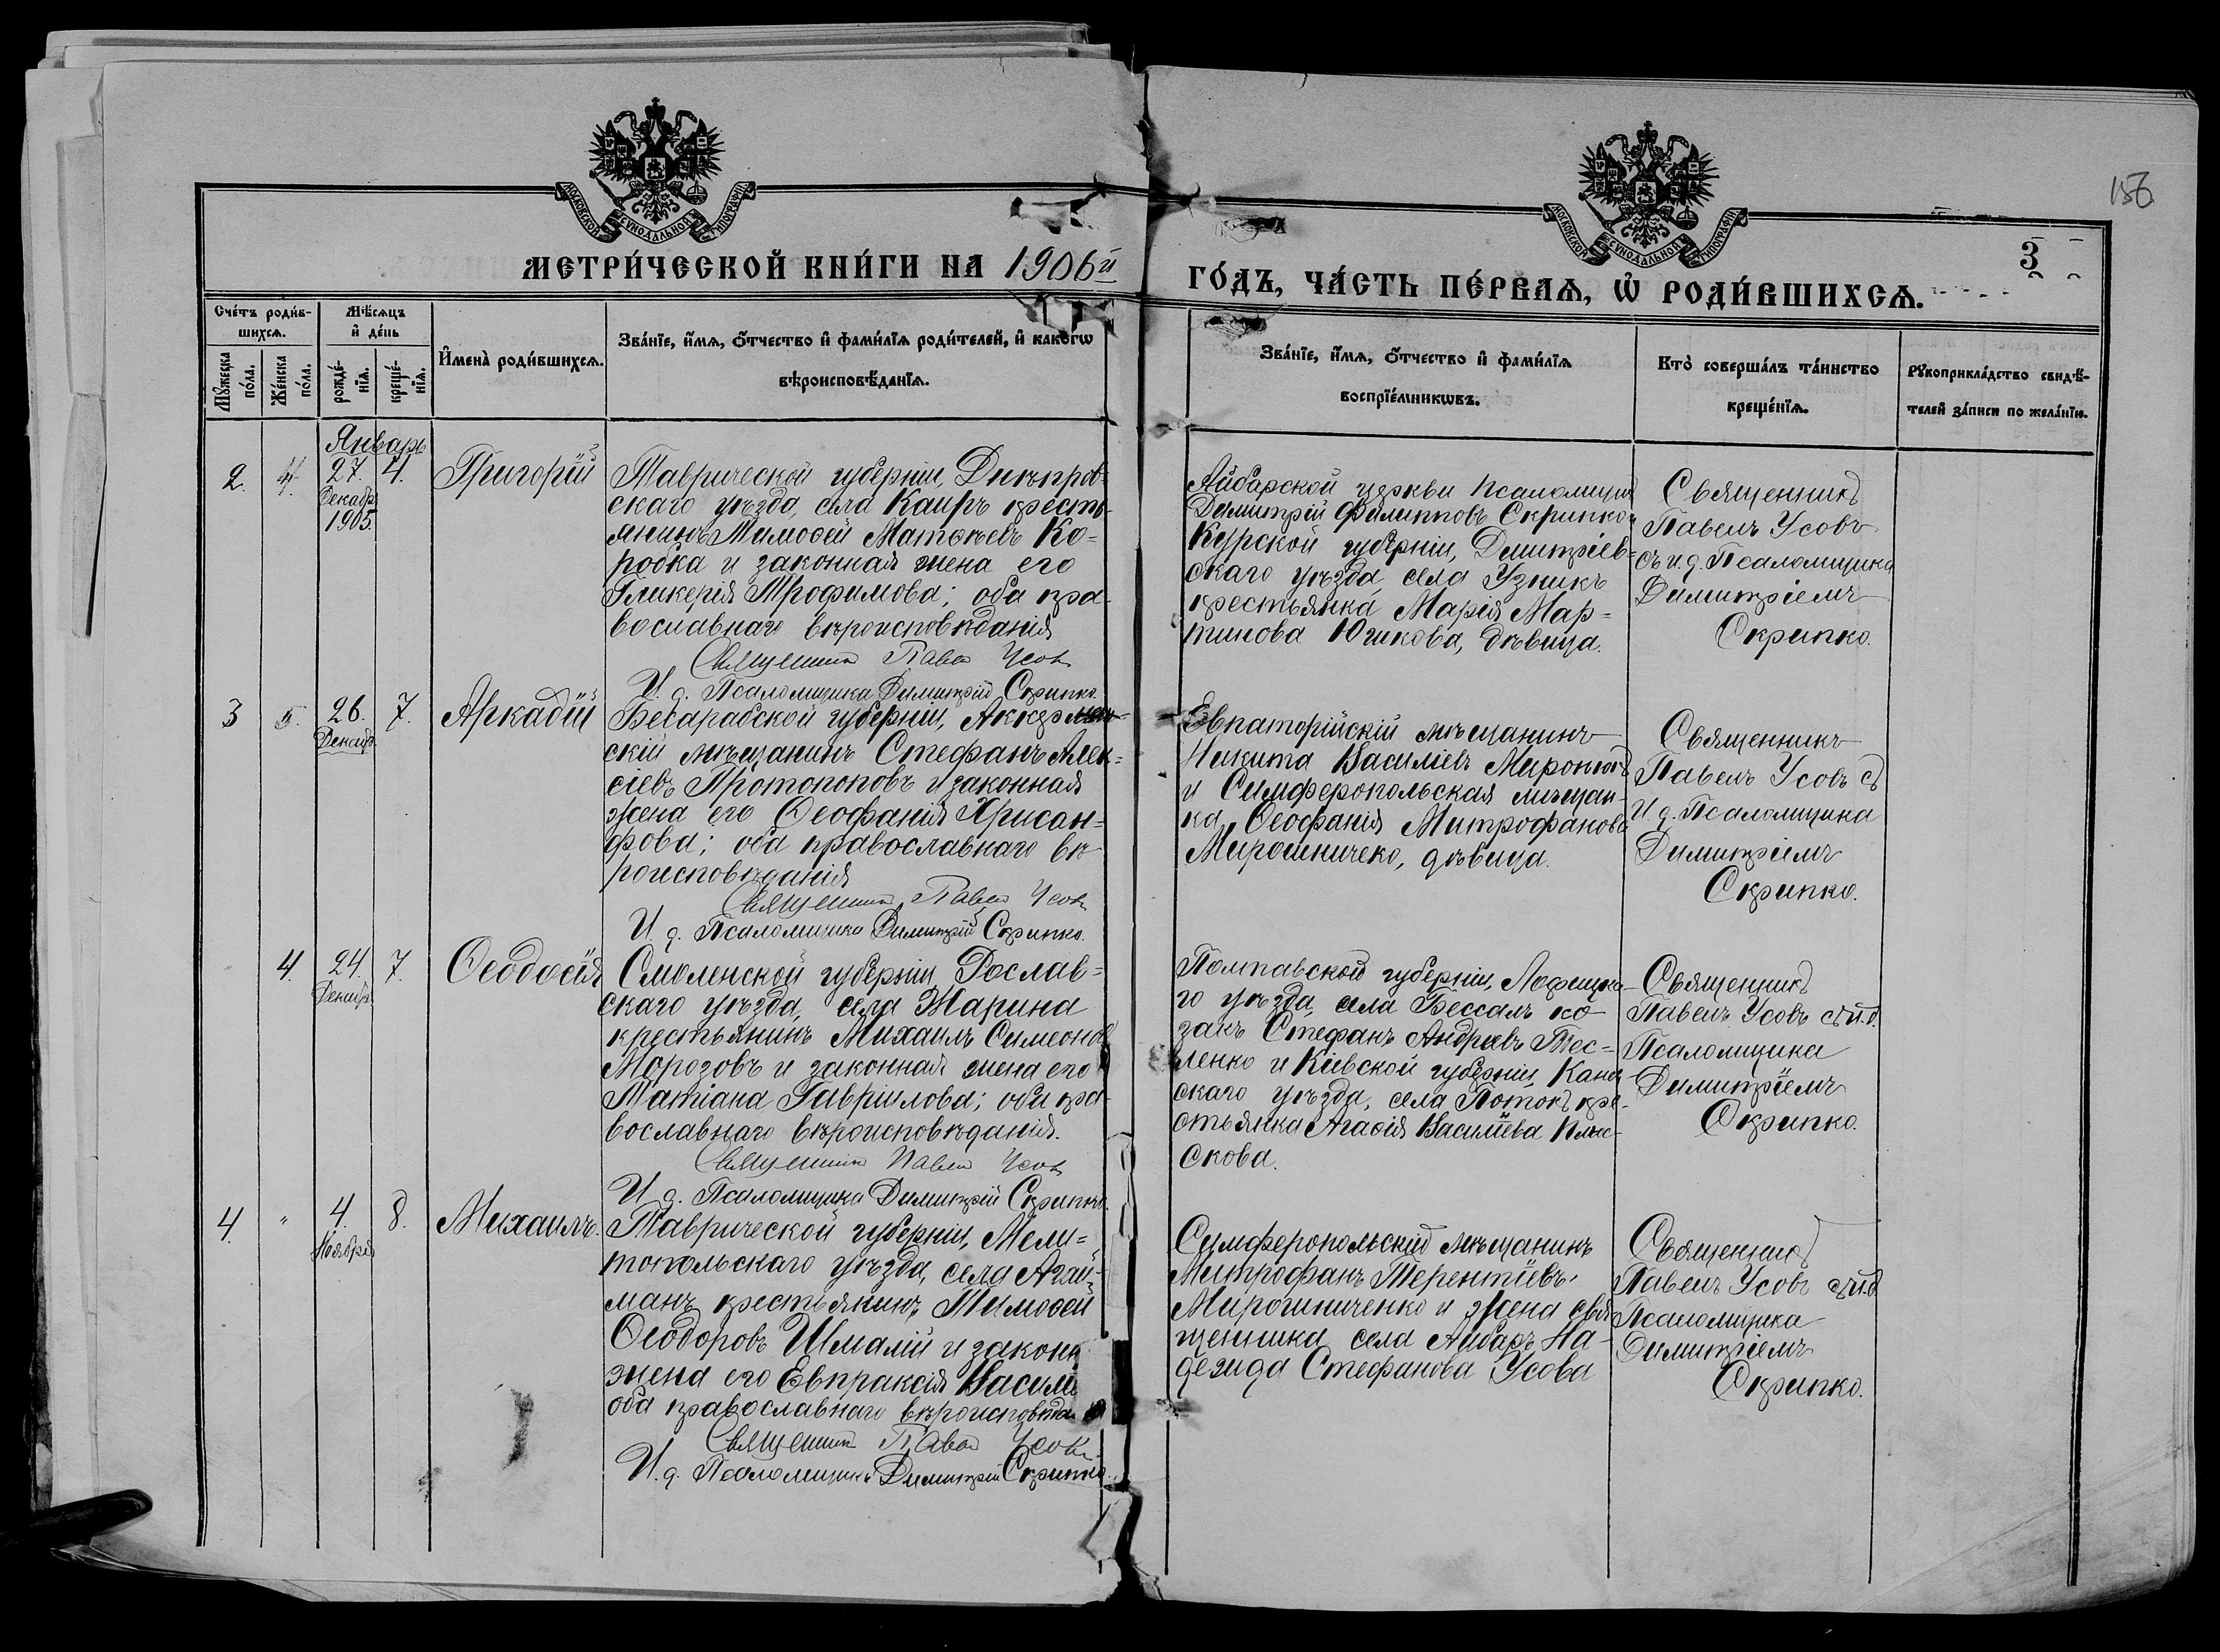 156
МОСКОВСКОЙ СѴНОДАЛЬНОЙ ТИПОГРАФІИ
МОСКОВСКОЙ СѴНОДАЛЬНОЙ ТИПОГРАФІИ
МЕТРИ́ЧЕСКОЙ КНИ́ГИ НА 1906й
ГО́ДЪ, ЧА́СТЬ ПЕ́РВАѦ, Ѡ҆ РОДИ́ВШИХСѦ.
3
Сче́тъ роди́в-
шихсѧ.
Мꙋ́жеска по́ла.
Же́нска по́ла.
Мѣ́сѧцъ
и҆ де́нь
рожде́-
нїѧ.
креще́-
нїѧ.
И҆мена̀ роди́вшихсѧ.
Зва́нїе, и҆́мѧ, ѻ҆́тчество и҆ фами́лїѧ роди́телей, и҆ како́гѡ
вѣроисповѣ́данїѧ.
Зва́нїе, и҆́мѧ, ѻ҆́тчество и҆ фами́лїѧ
воспрїе́мникѡвъ.
Кто̀ соверша́лъ та́инство
креще́нїѧ.
Рꙋкоприкла́дство свидѣ́-
телей за́писи по жела́нїю.
Январь
2. 27. 4. Григорій
Декабр
1905.
Таврической губерніи, Днѣпров-
скаго уѣзда, села Каиръ кресть-
янинъ Тимоѳей Матѳѣевъ Ко-
робка и законная жена его
Гликерія Трофимова; оба пра-
вославнаго вѣроисповѣданія
Священникъ Павелъ Усовъ
И. д. Псаломщика Димитрій Скрипко.
Айбарской церкви псаломщикъ
Димитрій Филипповъ Скрипко и
Курской губерніи, Дмитріев-
скаго уѣзда, села Узникъ
крестьянка Марія Мар-
тинова Югикова, дѣвица.
Священникъ
Павелъ Усовъ
съ и. д. Псаломщика
Димитріемъ
Скрипко.
3 5. 26. 7. Аркадій
Декабр.
Бесарабской губерніи, Аккерман-
скій мѣщанинъ Стефанъ Алек-
сіевъ Протопоповъ и законная
жена его Ѳеофанія Хрисан-
фова; оба православнаго вѣ-
роисповѣданія
Священникъ Павелъ Усовъ
И. д. Псаломщика Димитрій Скрипко.
Евпаторійскій мѣщанинъ
Никита Василіевъ
и Симферопольская мѣщан-
ка Ѳеофанія Митрофанова
Мирошничеко, дѣвица.
Священникъ
Павелъ Усовъ съ
И. д. Псаломщика
Димитріемъ
Скрипко.
4. 24. 7. Ѳеодосія
Декабр.
Смоленской губерніи, Рослав-
скаго уѣзда, села Жарина
крестьянинъ Михаилъ Симеоновъ
Морозовъ и законная жена его
Татіана Гавріилова; оба пра-
вославнаго вѣроисповѣданія.
Священникъ Павелъ Усовъ
И. д. Псаломщика Димитрій Скрипко.
Полтавской губерніи,
го уѣзда, села ко-
закъ Стефанъ Андреевъ Тес-
ленко и Кіевской губерніи, Канев
скаго уѣзда, села Потокъ кре-
стьянка Агаѳія Василіева
скова.
Священникъ
Павелъ Усовъ съ и. д.
Псаломщика
Димитріемъ
Скрипко.
4. " 4. 8. Михаилъ.
Ноября
Таврической губерніи, Мели-
топольскаго уѣзда, села Агай-
манъ крестьянинъ Тимоѳей
Ѳеодоровъ Шмалій и законн
жена его Евпраксія Васили
оба православнаго вѣроисповѣда
Священникъ Павелъ Усовъ
И. д. Псаломщика Димитрій Скрипко.
Симферопольскій мѣщанинъ
Митрофанъ Терентіевъ
Мирошниченко и жена свя
щенника села Айбаръ На-
дежда Стефанова Усова
Священникъ
Павелъ Усовъ съ и. д.
Псаломщика
Димитріемъ
Скрипко.